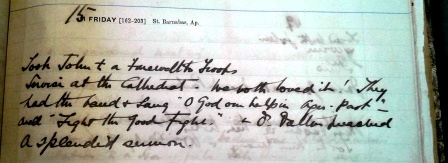 15 FRIDAY [162-203] St. Barnabas, Ap.
Took John to a Farewell to Troops
Service at the Cathedral - We both loved it! They
had the band & sang "O God our help in Ages Past"
and "Fight the good fight" & Dr Dallow preached
a splendid sermon.